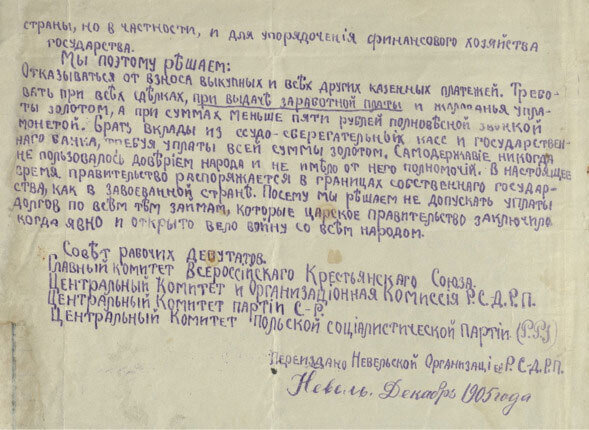 страны, но в частности, и для упорядоченія финансового хозяйства
государства.
Мы поэтому рѣшаем:
Отказываться от взноса выкупных и всѣх других казенных платежей. Требо-
вать при всѣх сдѣлках, при выдачѣ заработной платы и жалованья упла-
ты золотом, а при суммах меньше пяти рублей полновѣсной звонкой
монетой. Брать вклады из ссудо-сберегательных касс и государствен-
наго банка, требуя уплаты всей суммы золотом. Самодержавіе никогда
не пользовалось довѣріем народа и не имѣло от него полномочій. В настоящее
время правительство распоряжается в границах собственнаго государ-
ства, как в завоеванной странѣ. Посему мы рѣшаем не допускать уплаты
долгов по всѣм тѣм займам, которые царское правительство заключило
когда явно и открыто вело войну со всѣм народом.
Совѣт рабочих депутатов.
Главный комитет Всероссійскаго Крестьянскаго Союза.
Центральный Комитет и Организаціонная Комиссія Р.С.Д.Р.П.
Центральный Комитет партіи С-Р.
Центральный Комитет Польской соціалистической Партіи (P.P.S)
Переиздано Невельской Организаціей Р.С-Д.Р.П.
Невель. Декабрь 1905 года